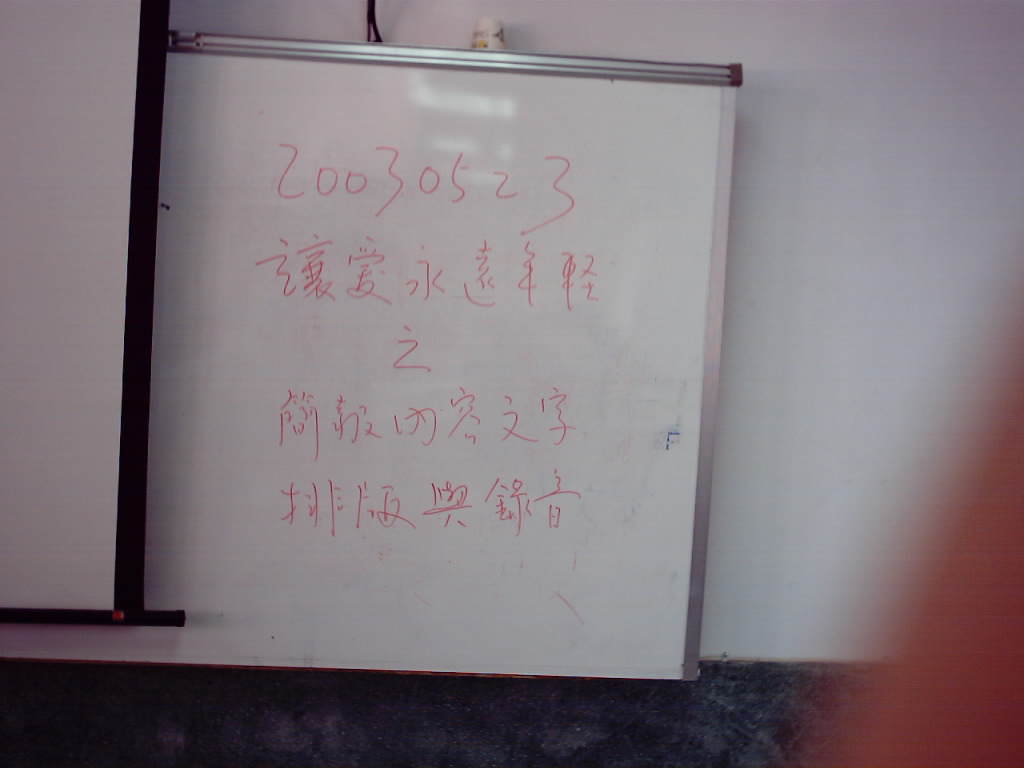 20030523
讓愛永遠年軽
之
簡報內容文字
排版與錄音
F